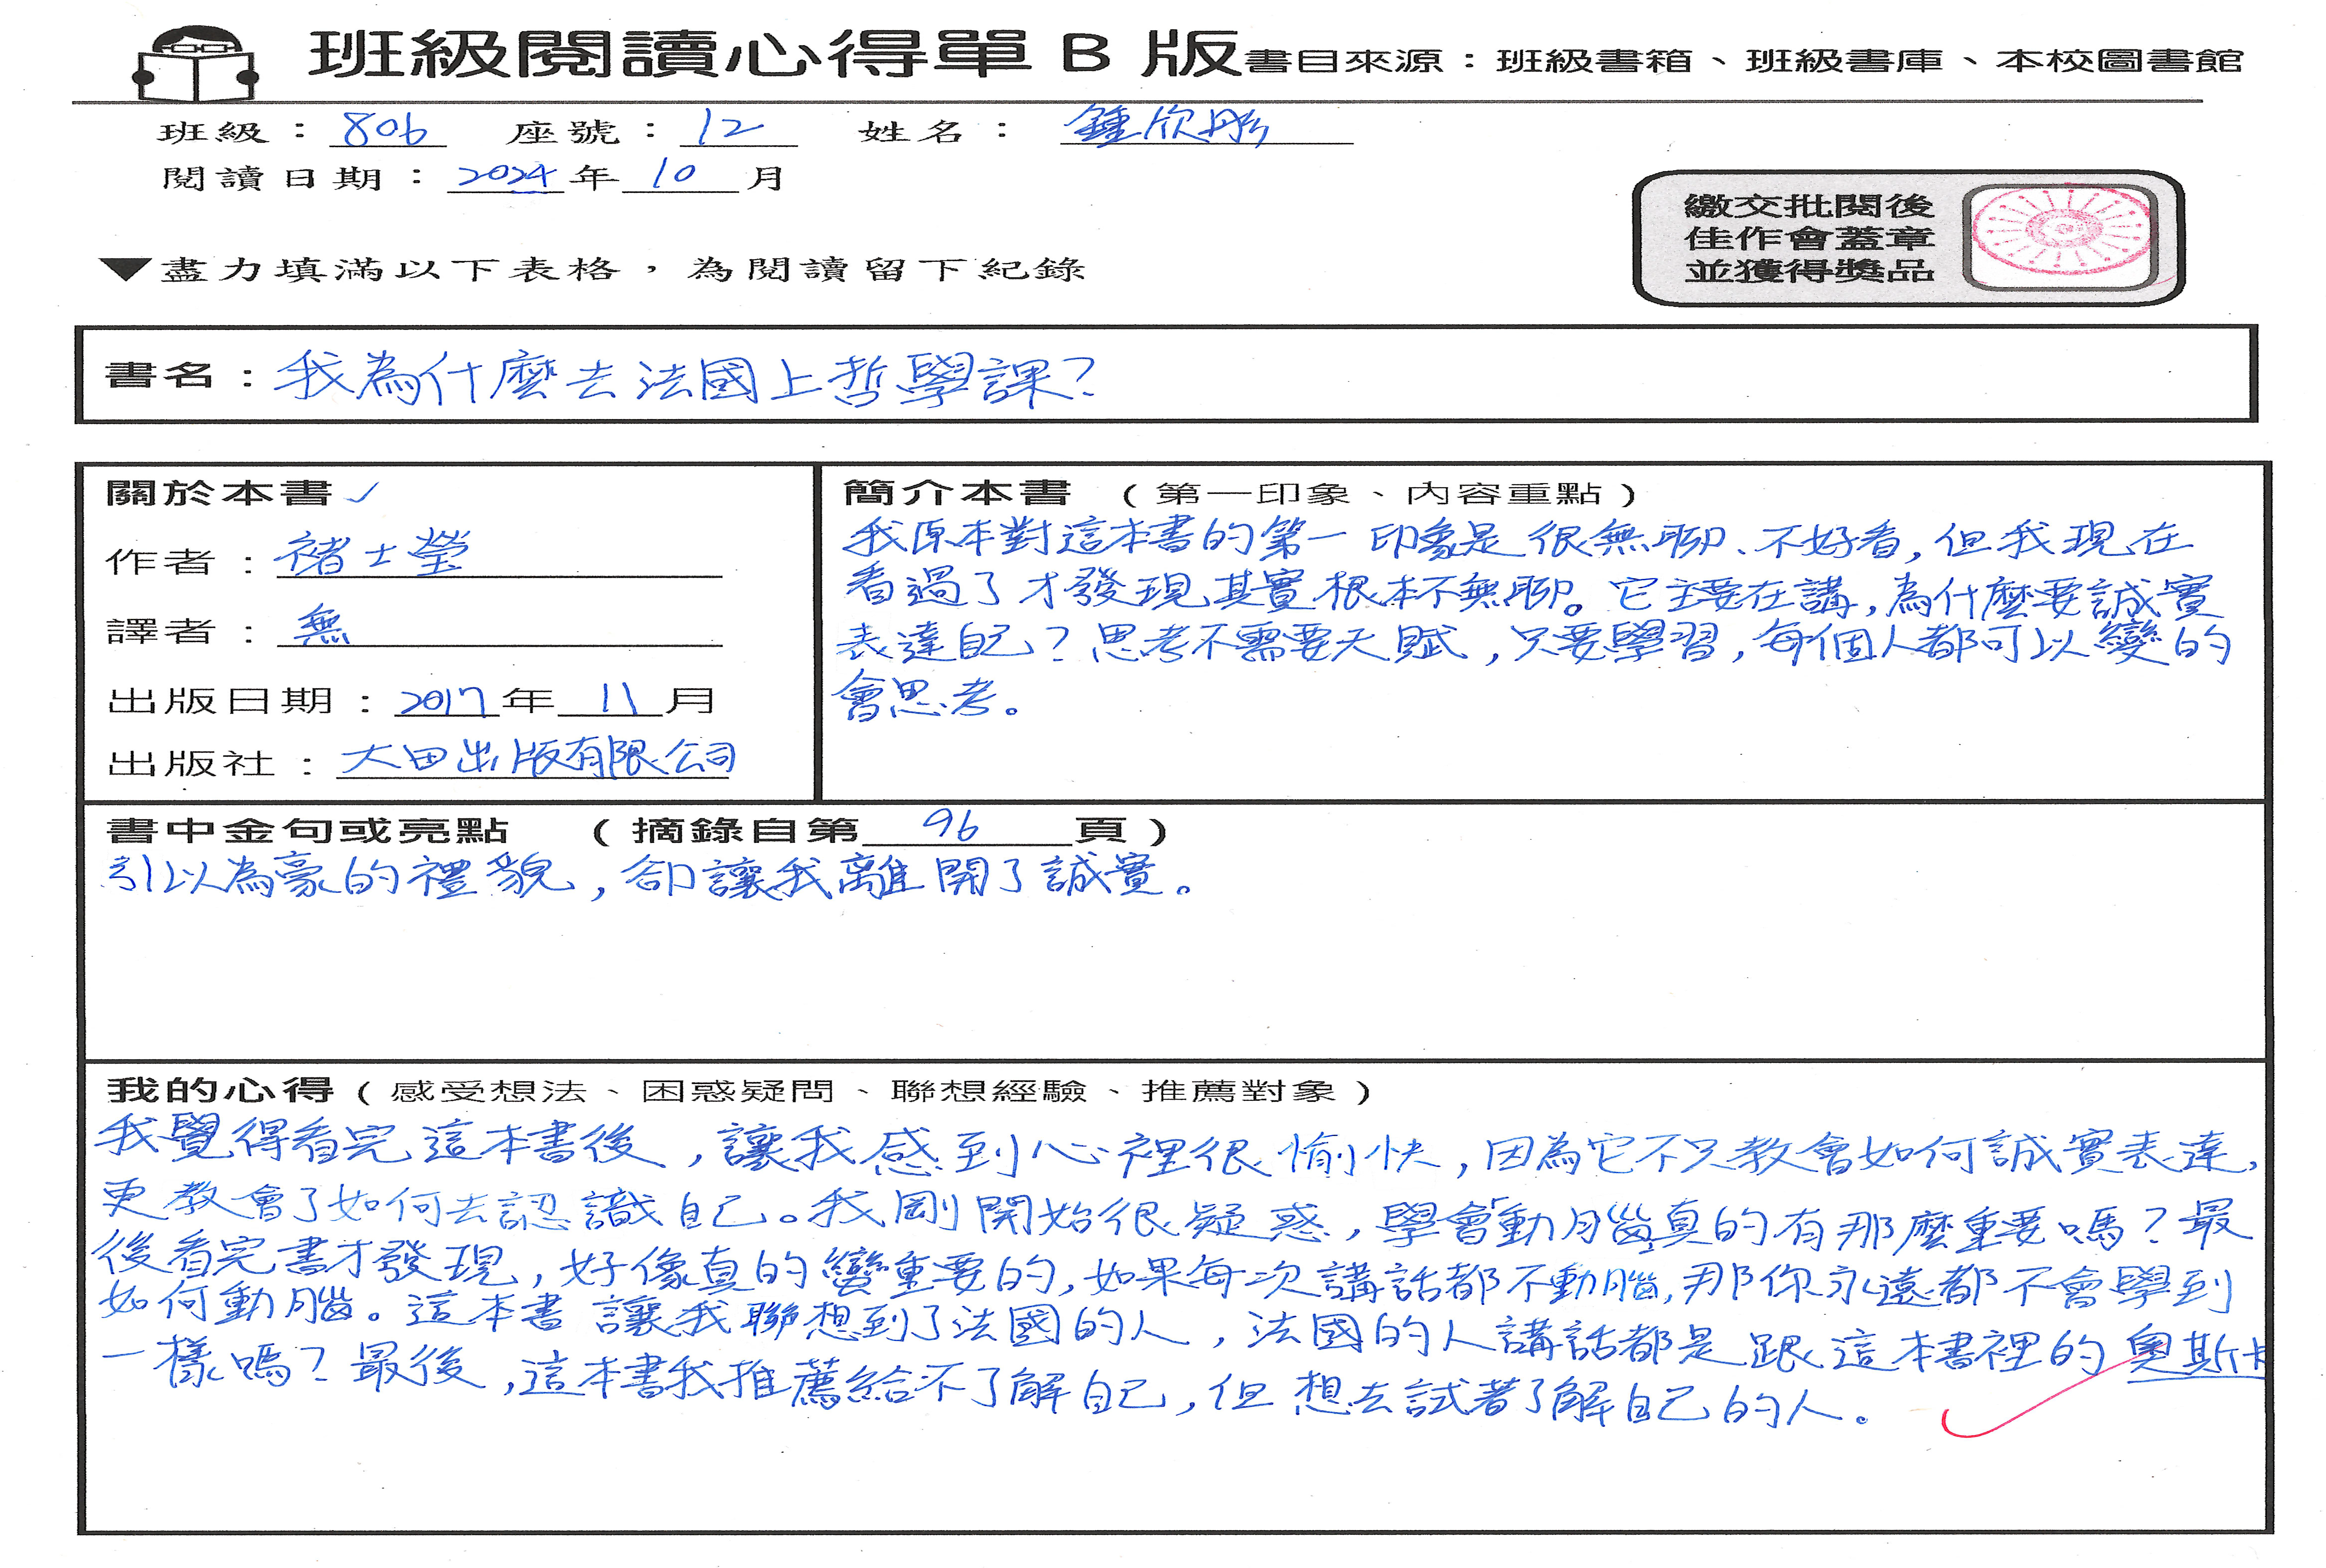 班級閱讀心得單 B 版 書目來源：班級書箱、班級書庫、本校圖書館
班級：806 座號：12 姓名：鍾欣彤
閱讀日期：2024年10月
繳交批閱後
佳作會蓋章
並獲得獎品
▼盡力填滿以下表格，為閱讀留下紀錄
書名：我為什麼去法國上哲學課？
關於本書✓
作者：褚士瑩
譯者：無
出版日期：2017年11月
出版社：大田出版有限公司
簡介本書（第一印象、內容重點）
我原本對這本書的第一印象是很無聊、不好看，但我現在
看過了才發現其實根本不無聊。它主要在講，為什麼要誠實
表達自己？思考不需要天賦，只要學習，每個人都可以變的
會思考。
書中金句或亮點（摘錄自第96頁）
引以為豪的禮貌，卻讓我離開了誠實。
我的心得（感受想法、困惑疑問、聯想經驗、推薦對象）
我覺得看完這本書後，讓我感到心裡很愉快，因為它不只教會如何誠實表達，
更教會了如何去認識自己。我剛開始很疑惑，學會「動腦」真的有那麼重要嗎？最
後看完書才發現，好像真的蠻重要的，如果每次講話都不動腦，那你永遠都不會學到
如何動腦。這本書讓我聯想到了法國的人，法國的人講話都是跟這本書裡的奧斯卡
一樣嗎？最後，這本書我推薦給不了解自己，但想去試著了解自己的人。